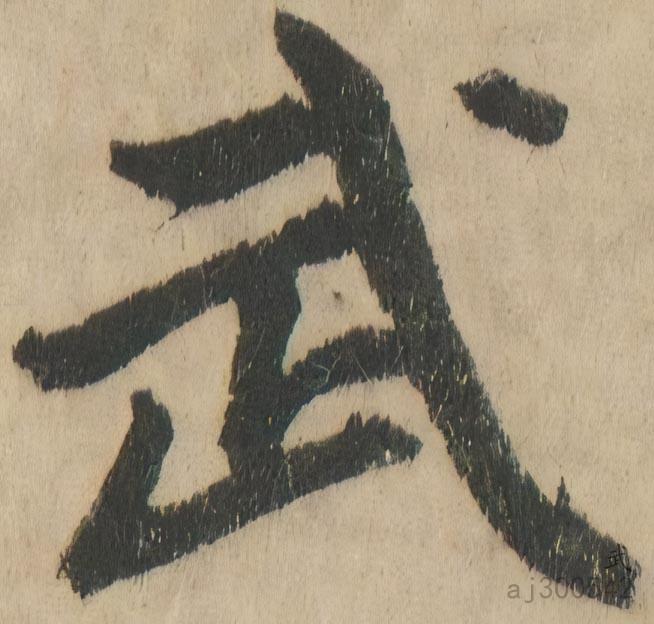 武
武
aj300542